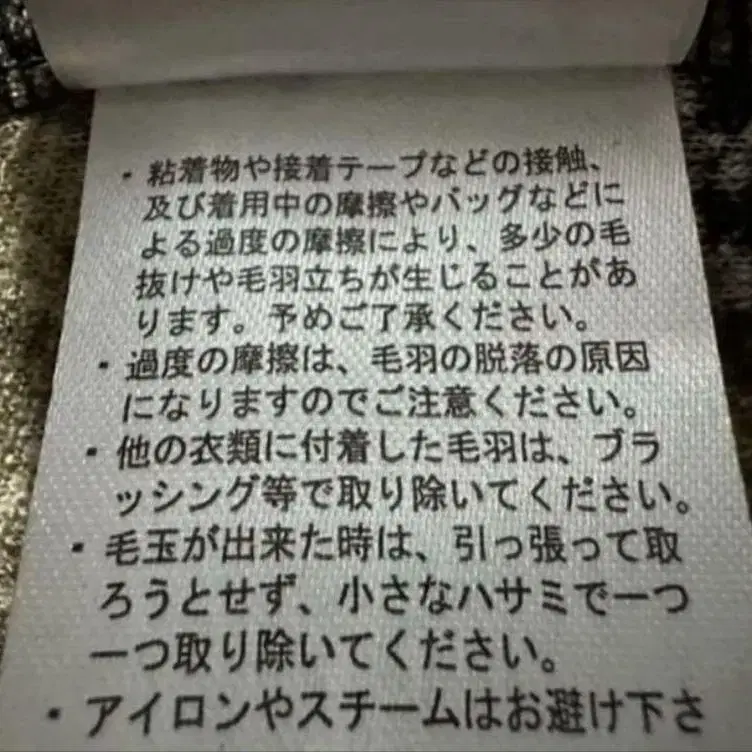 ・粘着物や接着テープなどの接触、
及び着用中の摩擦やバッグなどに
よる過度の摩擦により、多少の毛
抜けや毛羽立ちが生じることがあ
ります。予めご了承ください。
・過度の摩擦は、毛羽の脱落の原因
になりますのでご注意ください。
・他の衣類に付着した毛羽は、ブラ
ッシング等で取り除いてください。
・毛玉が出来た時は、引っ張って取
ろうとせず、小さなハサミで一つ
一つ取り除いてください。
・アイロンやスチームはお避け下さ